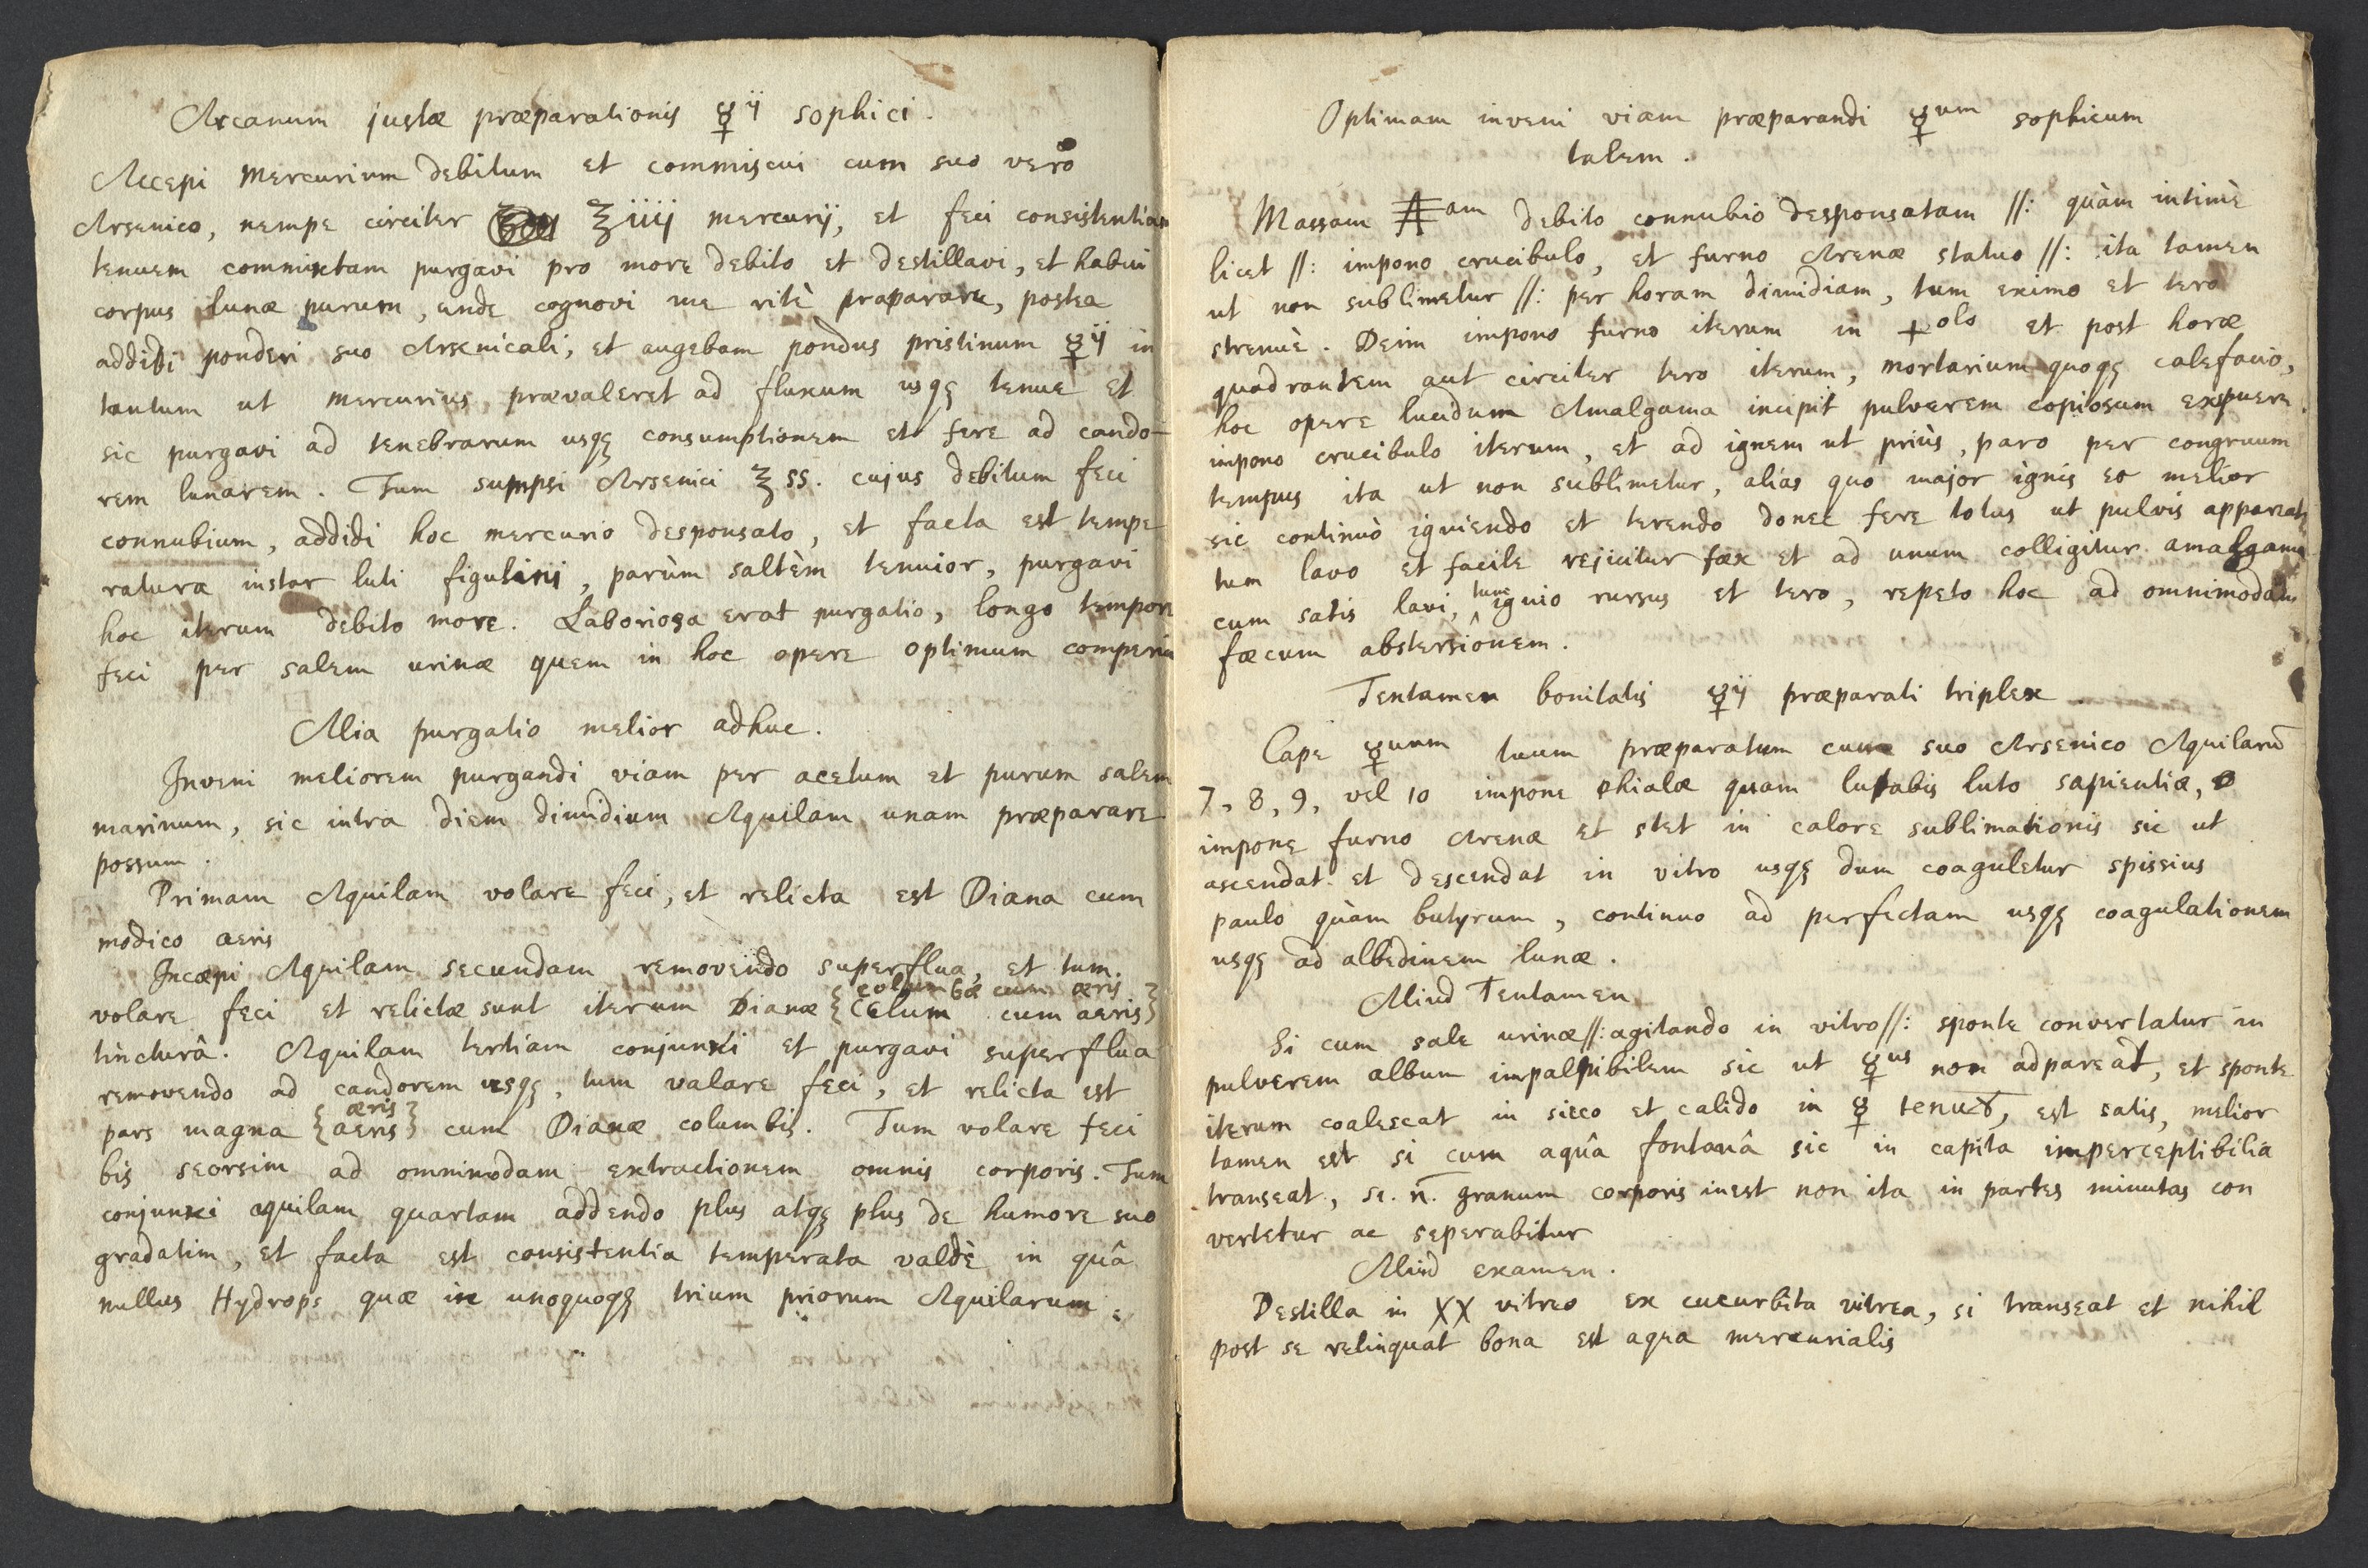 Arcanum justæ præparationis ☿ij sophici.
Accepi Mercurium debitum et commiscui cum suo vero
Arsenico, nempe circiter ℥iiij mercurij, et feci consistentiam
tenuem commixtam purgavi pro more debito et destillavi, et habui
corpus lunæ purum, unde cognovi me ritè præparare, postea
addidi ponderi suo Arsenicali, et augebam pondus pristinum ☿ij in
tantum ut mercurius prævaleret ad fluxum usqꝫ tenue et
sic purgavi ad tenebrarum usqꝫ consumptionem et fere ad cando-
rem lunarem. Tum sumpsi Arsenici ℥ss. cujus debitum feci
connubium, addidi hoc mercurio desponsato, et facta est tempe
ratura instar luti figulini, parùm saltèm tenuior, purgavi
hoc iterum debito more. Laboriosa erat purgatio, longo tempore
feci per salem urinæ quem in hoc opere optimum comperiu
Alia purgatio melior adhuc.
Inveni meliorem purgandi viam per acetum et purum salem
marinum, sic intra diem dimidium Aquilam unam præparare
possum.
Primam Aquilam volare feci, et relicta est Diana cum
modico aeris
Incæpi Aquilam secundam removendo superflua, et tum.
columbæ cum æris
volare feci et relictæ sunt iterum Dianæ {cælum cum aeris}
tincturâ. Aquilam tertiam conjunxi et purgavi superflua
removendo ad candorem usqꝫ, tum valare feci, et relicta est
æris
pars magna {aeris} cum Dianæ columbis. Tum volare feci
bis seorsim ad omnimodam extractionem omnis corporis. Tum
conjunxi aquilam quartam addendo plus atqꝫ plus de humore suo
gradatim, et facta est consistentia temperata valdè in quâ
nullus Hydrops quæ in unoquoqꝫ trium priorum Aquilarum.
Optimam inveni viam præparandi ☿um sophicum
talem.
Massam am debito connubio desponsatam //: quàm intimè
licet //: impono crucibulo, et furno Arenæ statuo //: ita tamen
ut non sublimetur //: per horam dimidiam, tum eximo et tero
strenuè. Dein impono furno iterum in +olo et post horæ
quadrantem aut circiter tero iterum, mortarium quoqꝫ calefacio,
hoc opere lucidum Amalgama incipit pulverem copiosum exspuere.
impono crucibulo iterum, et ad ignem ut priùs, paro per congruum
tempus ita ut non sublimetur, aliàs quo major ignis eo melior
sic continuò igniendo et terendo donec fere totus ut pulvis appareat
tum lavo et facile rejicitur fæx et ad unum colligitur amalgama
cum satis lavi, tunc ignio rursus et tero, repeto hoc ad omnimodam
fæcum abstersionem.
Tentamen bonitatis ☿ij præparati triplex.
Cape ☿uum tuum præparatum cum suo Arsenico Aquilarū
7, 8, 9, vel 10 impone phialæ quam lutabis luto sapientiæ,
impone furno Arenæ et stet in calore sublimationis sic ut
ascendat et descendat in vitro usqꝫ dum coaguletur spissius
paulo quàm butyrum, continuo ad perfectam usqꝫ coagulationem
usqꝫ ad albedinem lunæ.
Aliud Tentamen
Si cum sale urinæ //: agitando in vitro //: sponte convertatur in
pulverem album impalpibilem sic ut ☿us non adpareat, et sponte
iterum coalescat in sicco et calido in ☿ tenuē, est satis, melior
tamen est si cum aquâ fontanâ sic in capita imperceptibilia
transeat, si. n̄. granum corporis inest non ita in partes minutas con
vertetur ac seperabitur
Aliud examen.
Destilla in XX vitreo ex cucurbita vitrea, si transeat et nihil
post se relinquat bona est aqua mercurialis